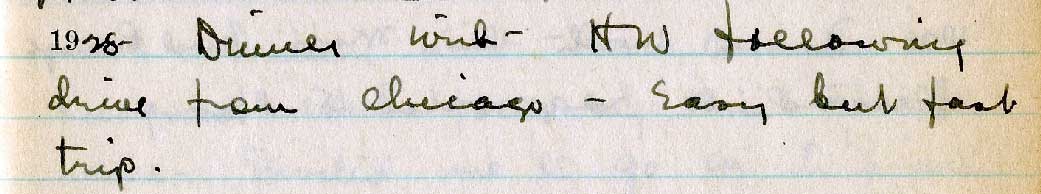 1925- Dinner with HW following
drive from Chicago - Easy but fast
trip.